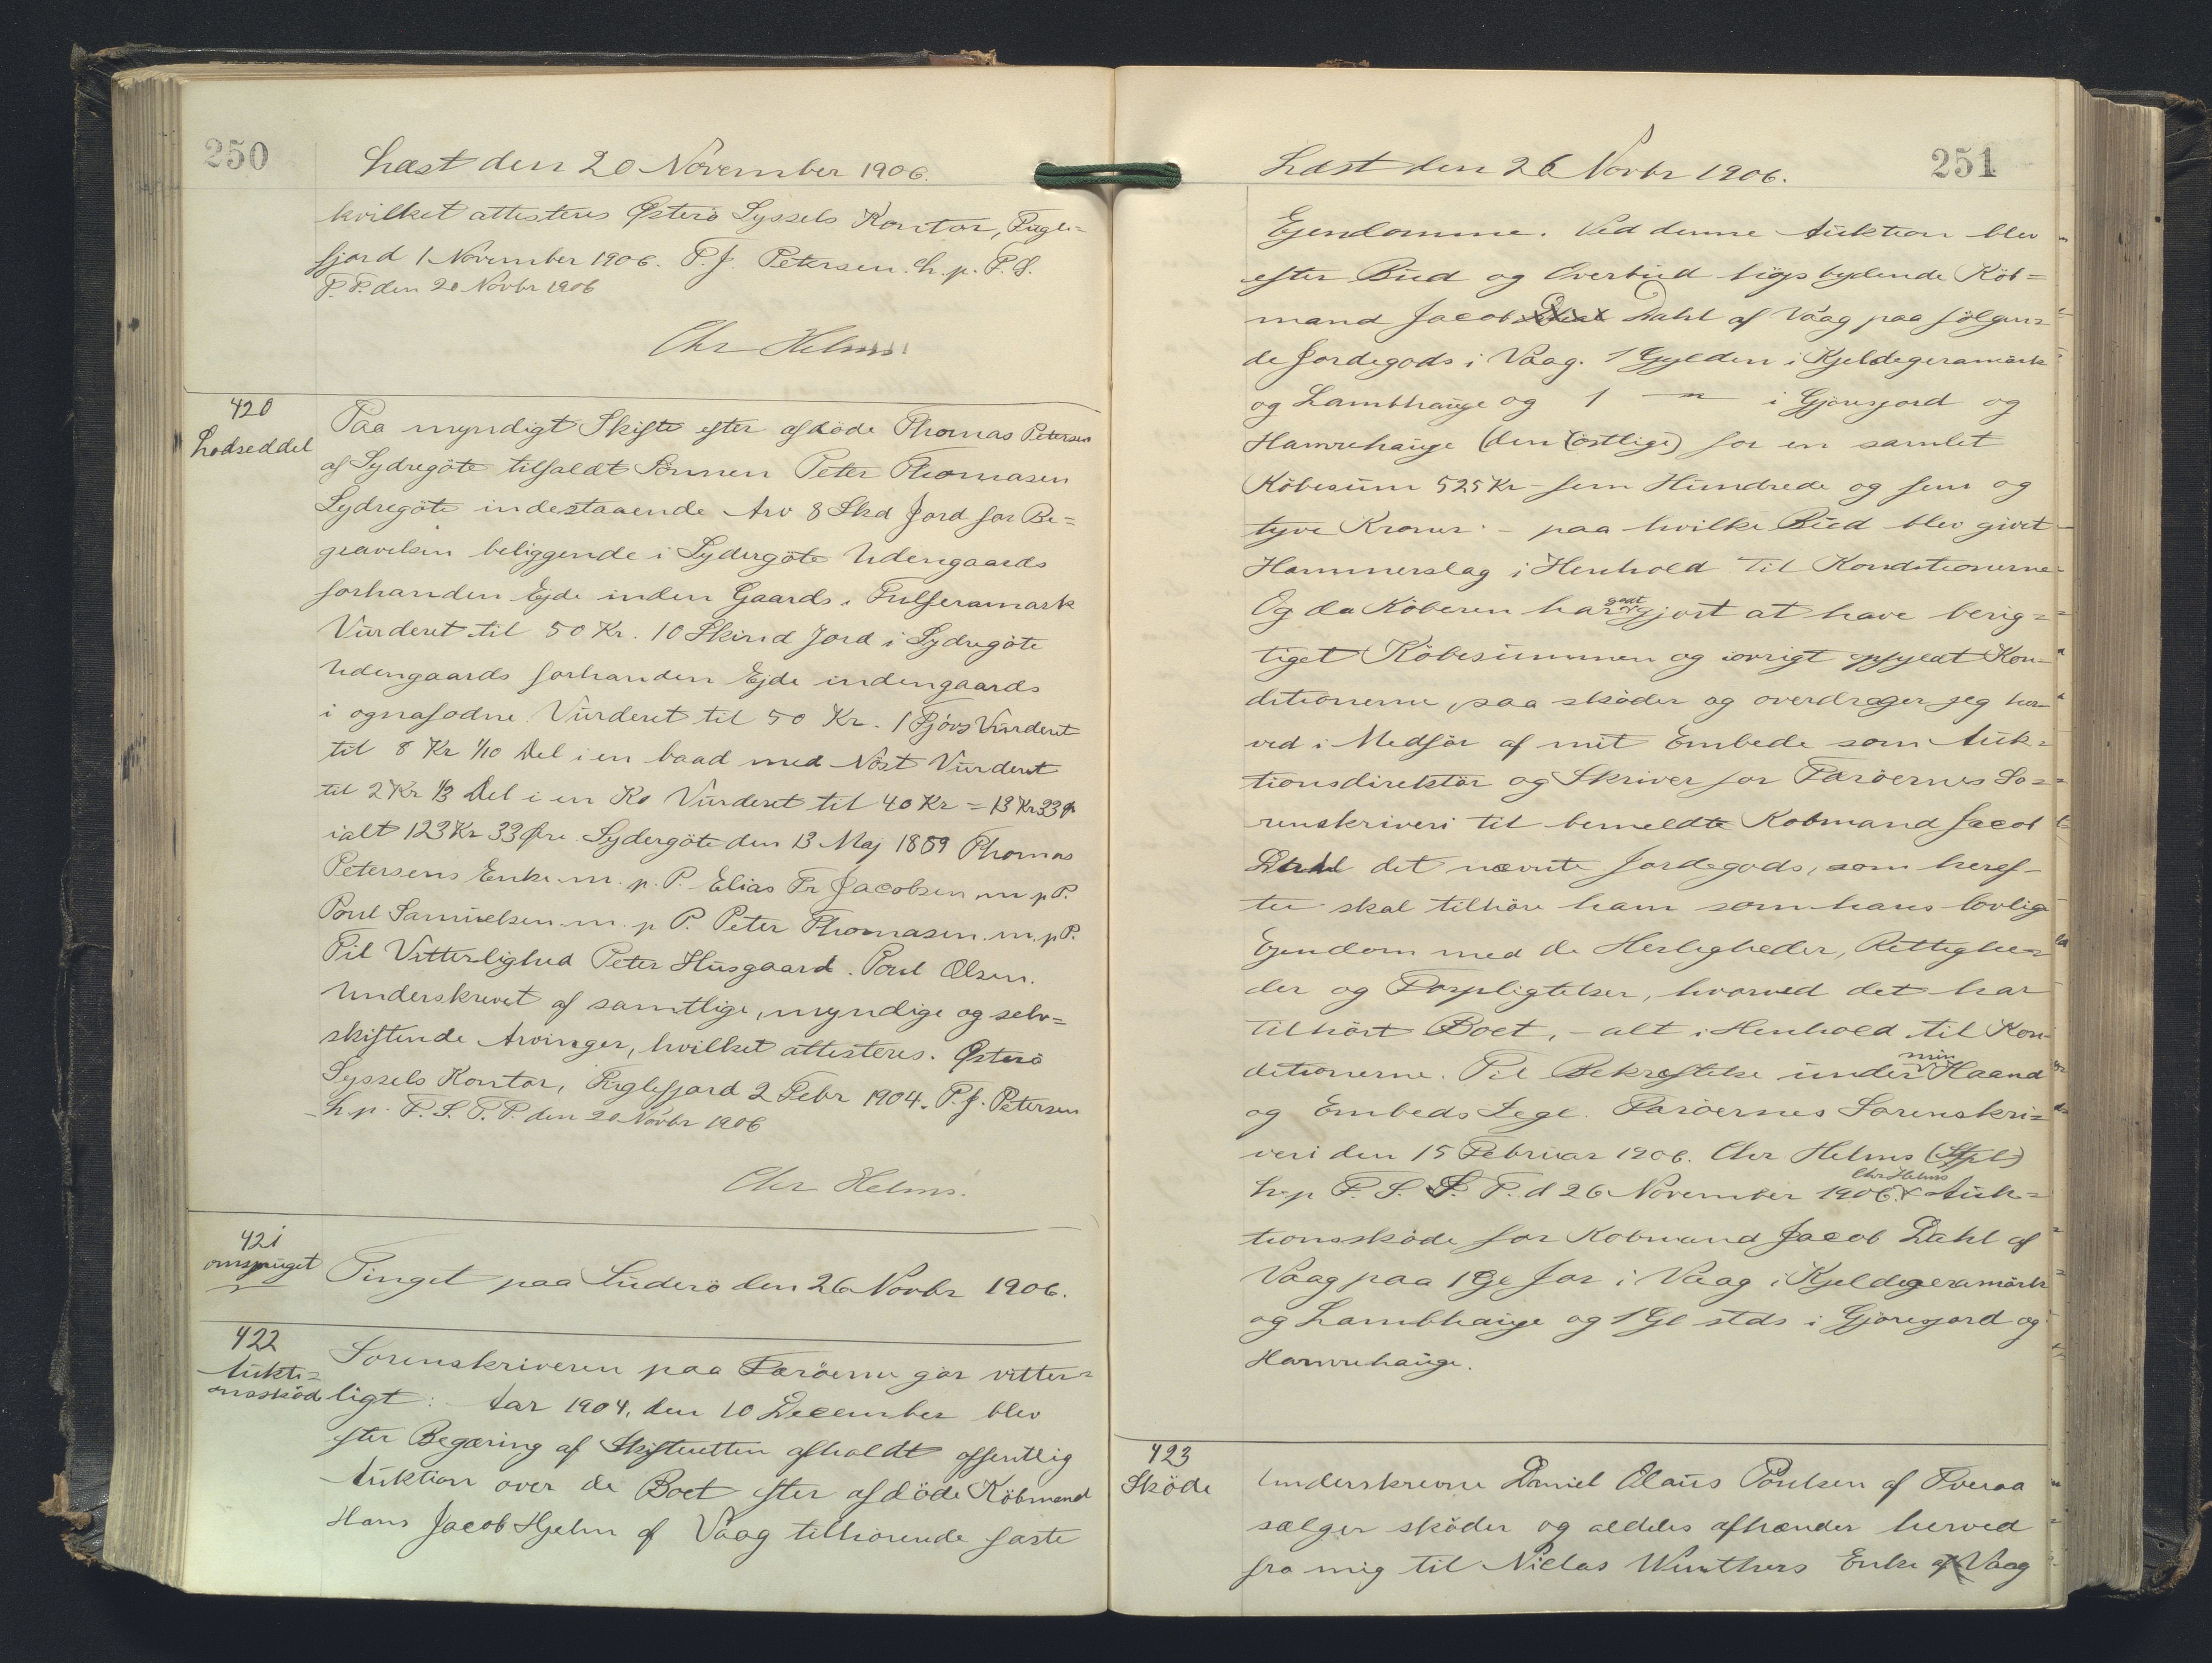 250
Læst den 20 November 1906.
hvilket attesteres Østerö Syssels Kontor, Fugle=
fjord 1 November 1906. P. J. Petersen. h. p. P. S.
P. P. den 20 Novbr 1906
Chr Helms
420
Lodseddel
Paa myndigt Skifte efter afdöde Thomas Petersen
af Sydregöte tilfaldt Sönnen Peter Thomasen
Sydregöte indestaaende Arv 8 Skd Jord for Be=
gravelsen beliggende i Sydergöte Udengaards
forhanden Ejde inden Gaards i Fulferamark
Vurderet til 50 Kr. 10 Skind Jord i Sydregöte
Udengaards forhanden Ejde indengaards
i ognafodne Vurderet til 50 Kr. 1 Vurderet
til 8 Kr 1/10 Del i en baad med Nöst Vurderet
til 2 Kr 1/3 Del i en Ko Vurderet til 40 Kr = 13 Kr 33 Ø
ialt 123 Kr 33 Øre. Sydergöte den 13 Maj 1889 Thomas
Petersens Enke m. p. P. Elias Fr Jacobsen m p P.
Poul Samuelsen m. p P. Peter Thomasen m. p P.
Til Vitterlighed Peter Husgaard. Poul Olsen.
Underskrevet af samtlige, myndige og selv=
skiftende Arvinger, hvilket attesteres. Østerö
Syssels Kontor, Fuglefjord 2 Febr 1904. P. J. Petersen
h. p. P. S. T. P. den 20 Novbr 1906
Chr Helms.
421
Tinget paa Suderö den 26 Novbr 1906.
422
Aukti=
onsskød
Sorenskriveren paa Færöerne gör vitter=
ligt: Aar 1904, den 10 December blev
efter Begæring af Skifteretten afholdt offentlig
Auktion over de Boet efter afdöde Köbmand
Hans Jacob Hjelm af Vaag tilhörende faste
251
Læst den 26 Novbr 1906.
Ejendomme. Ved denne Auktion blev
efter Bud og Overbud höjstbydende Köb=
mand Jacob Dahl af Vaag paa fölgen=
de Jordegods i Vaag. 1 Gylden i Kjeldegeramörk
og Lambhauge og 1 — " — i Gjöresjord og
Hamrehauge (den östlige) for en samlet
Köbesum 525 Kr – fem Hundrede og fem og
tyve Kroner – paa hvilke Bud blev givet
Hammerslag i Henhold til Konditionerne
Og da Köberen har godtgjort at have berig=
tiget Köbesummen og iövrigt opfyldt Kon=
ditionerne, saa sköder og overdrager jeg her=
ved i Medför af mit Embede som Auk=
tionsdirektör og Skriver for Færöernes So=
renskriveri til bemeldte Kobmand Jacob
Dahl det nævnte Jordegods, som heref=
ter skal tilhöre ham som hans lovlige
Ejendom med de Herligheder, Rettighe=
der og Forpligtelser, hvorved det har
tilhört Boet, – alt i Henhold til Kon=
ditionerne. Til Bekræftelse under min Haand
og Embeds Segl. Færöernes Sorenskri=
veri den 15 Februar 1906. Chr Helms
h. p F. S. T. P. d 26 November 1906. Chr Helms Auk=
tionssköde for Kobmand Jacob Dahl af
Vaag paa 1 Gl Jor i Vaag i Kjeldegeramörk
og Lambhauge og 1 Gl stds i Gjöresjord og
Hamrehauge.
423
Sköde
Underskrevne Daniel Claus Poulsen af Tveraa
sælger sköder og aldeles afhænder herved
fra mig til Niclas Winthers Enke af Vaag